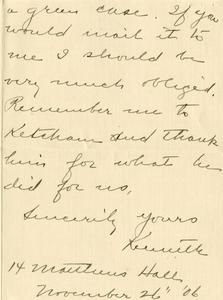 a green case. If you
would mail it to
me I should be
very much obliged.
Remember me to
Ketcham and thank
him for what he
did for us,
Sincerely yours
Kenneth
14 Matthews Hall
November 26th '06